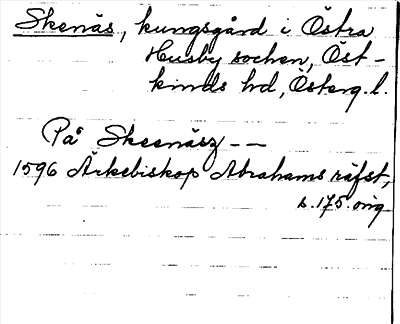 Skenäs, kungsgård i Östra
Husby socken, Öst-
kinds hd, Österg. l.
På Skeenäsz --
1596 Ärkebiskop Abrahams räfst,
s. 175. orig